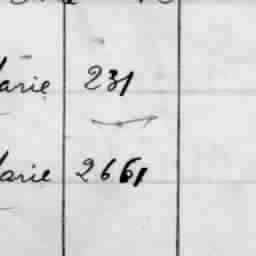 arie 231
arie 2661